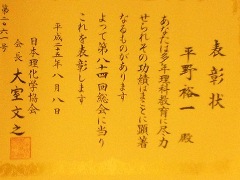 表彰状
平野裕一殿
あなたは多年理科教育に尽力
せられその功績はまことに顕著
なるものがあります
よって第八十四回総会に当り
これを表彰します
平成二十五年八月八日
日本理化学協会
会長 大室文之
第二〇六一号